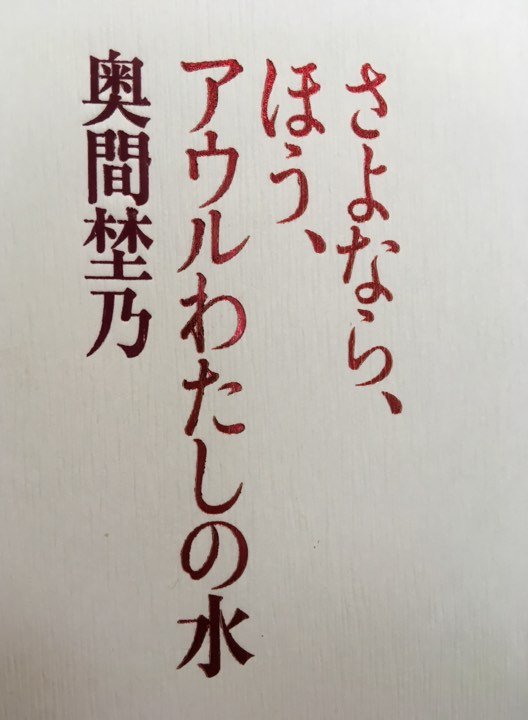 さよなら、
ほう、
アウルわたしの水
奥間埜乃